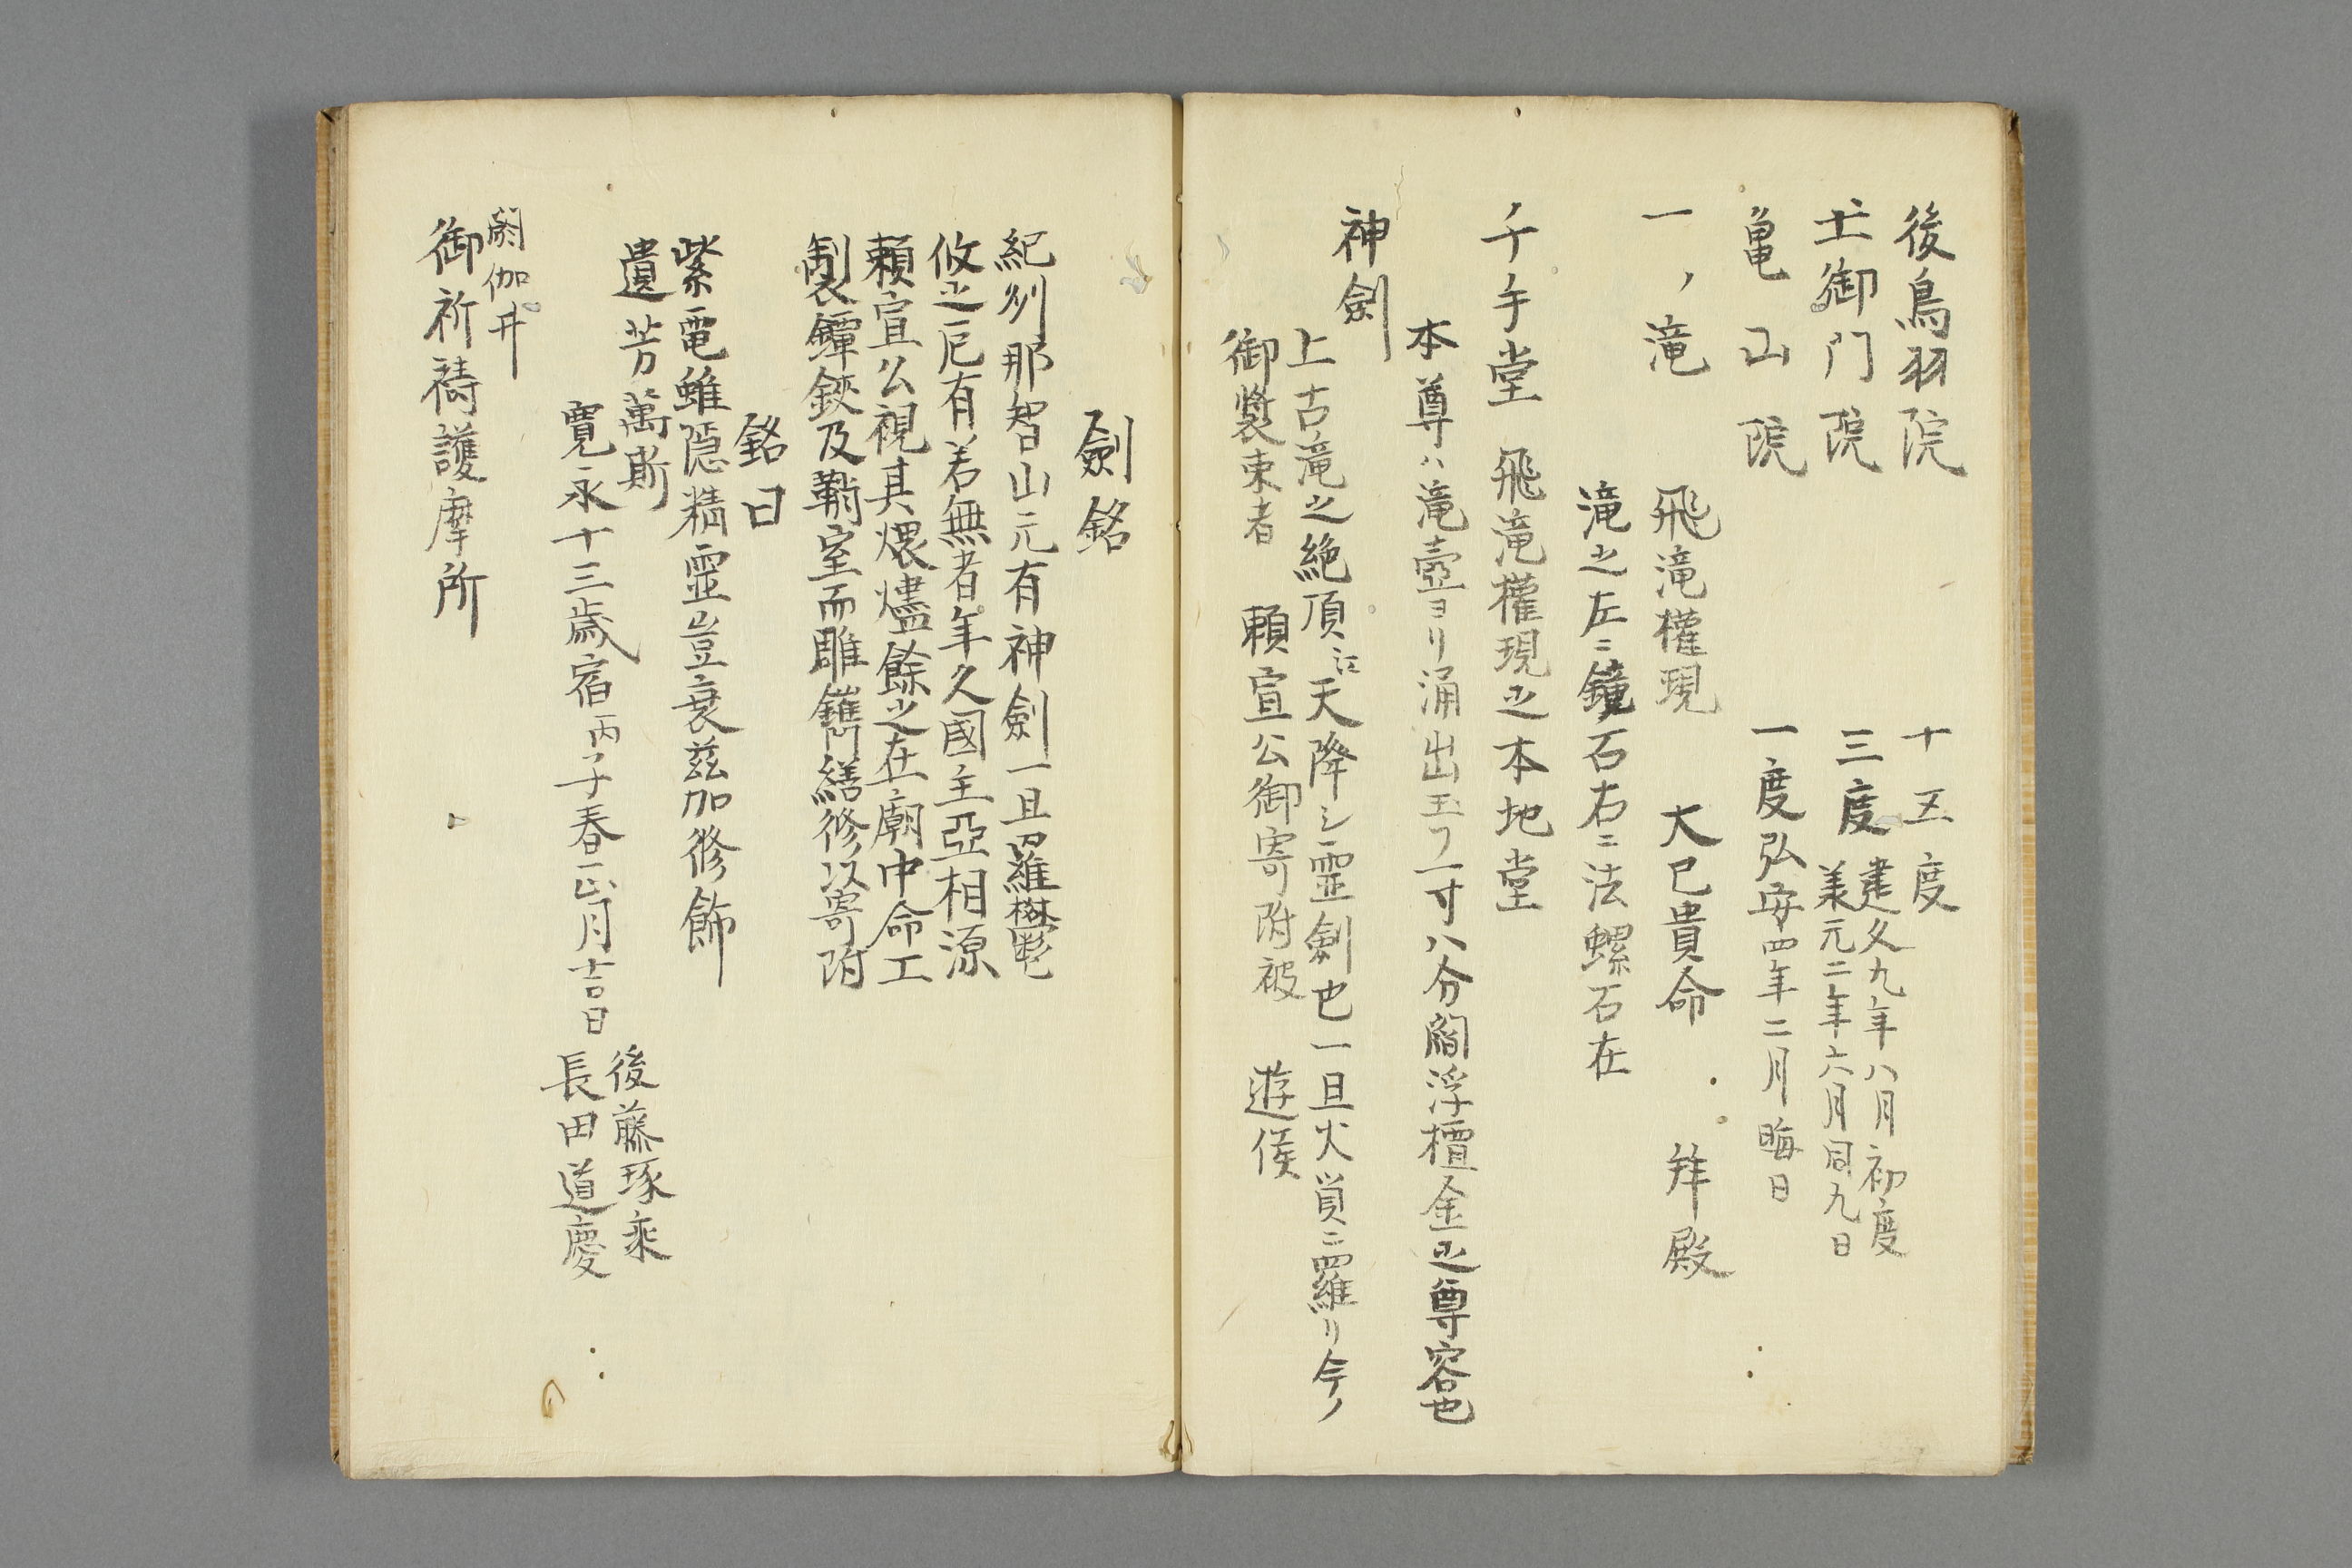 後鳥羽院 十五度
土御门院 三度 建久九年八月初度
羙元二年六月同九日
亀山院 一度弘安四年二月晦日
一ノ滝 飛滝權現 大已貴命 拜殿
滝之左ニ鏡石右ニ法螺石在
千手堂 飛滝權現之本地堂
本尊ハ滝壺ヨリ涌出玉フ一寸八分閻浮檀金之尊容也
神劍
上古滝之絶頂江天降シ霊劍也一旦火災ニ羅リ今ノ
御裝束者 頼宣公御寄附被 遊候
劍銘
紀列那智山元有神劍一旦羅樊
攸之厄有若無者年久國主亞相源
頼宣公視其煨燼餘之在廟中命工
製鐔鋏及鞘室而雕鐫繕修以寄附
銘曰
紫電雖隠精霊豈衰茲加修飾
遺芳萬斯
寛永十三歳宿丙子春正月吉日 後藤琢乘
長田道慶
閼伽井
御祈禱護摩所